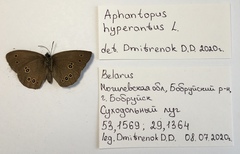 Aphantopus
hyperantus L.
det. Dmitrenok D.D. 2020г.
Belarus
Могилевская обл, Бобруйский р-н,
г. Бобруйск
Суходольный луг
53,1569; 29,1364
leg. Dmitrenok D.D. 08.07.2020г.